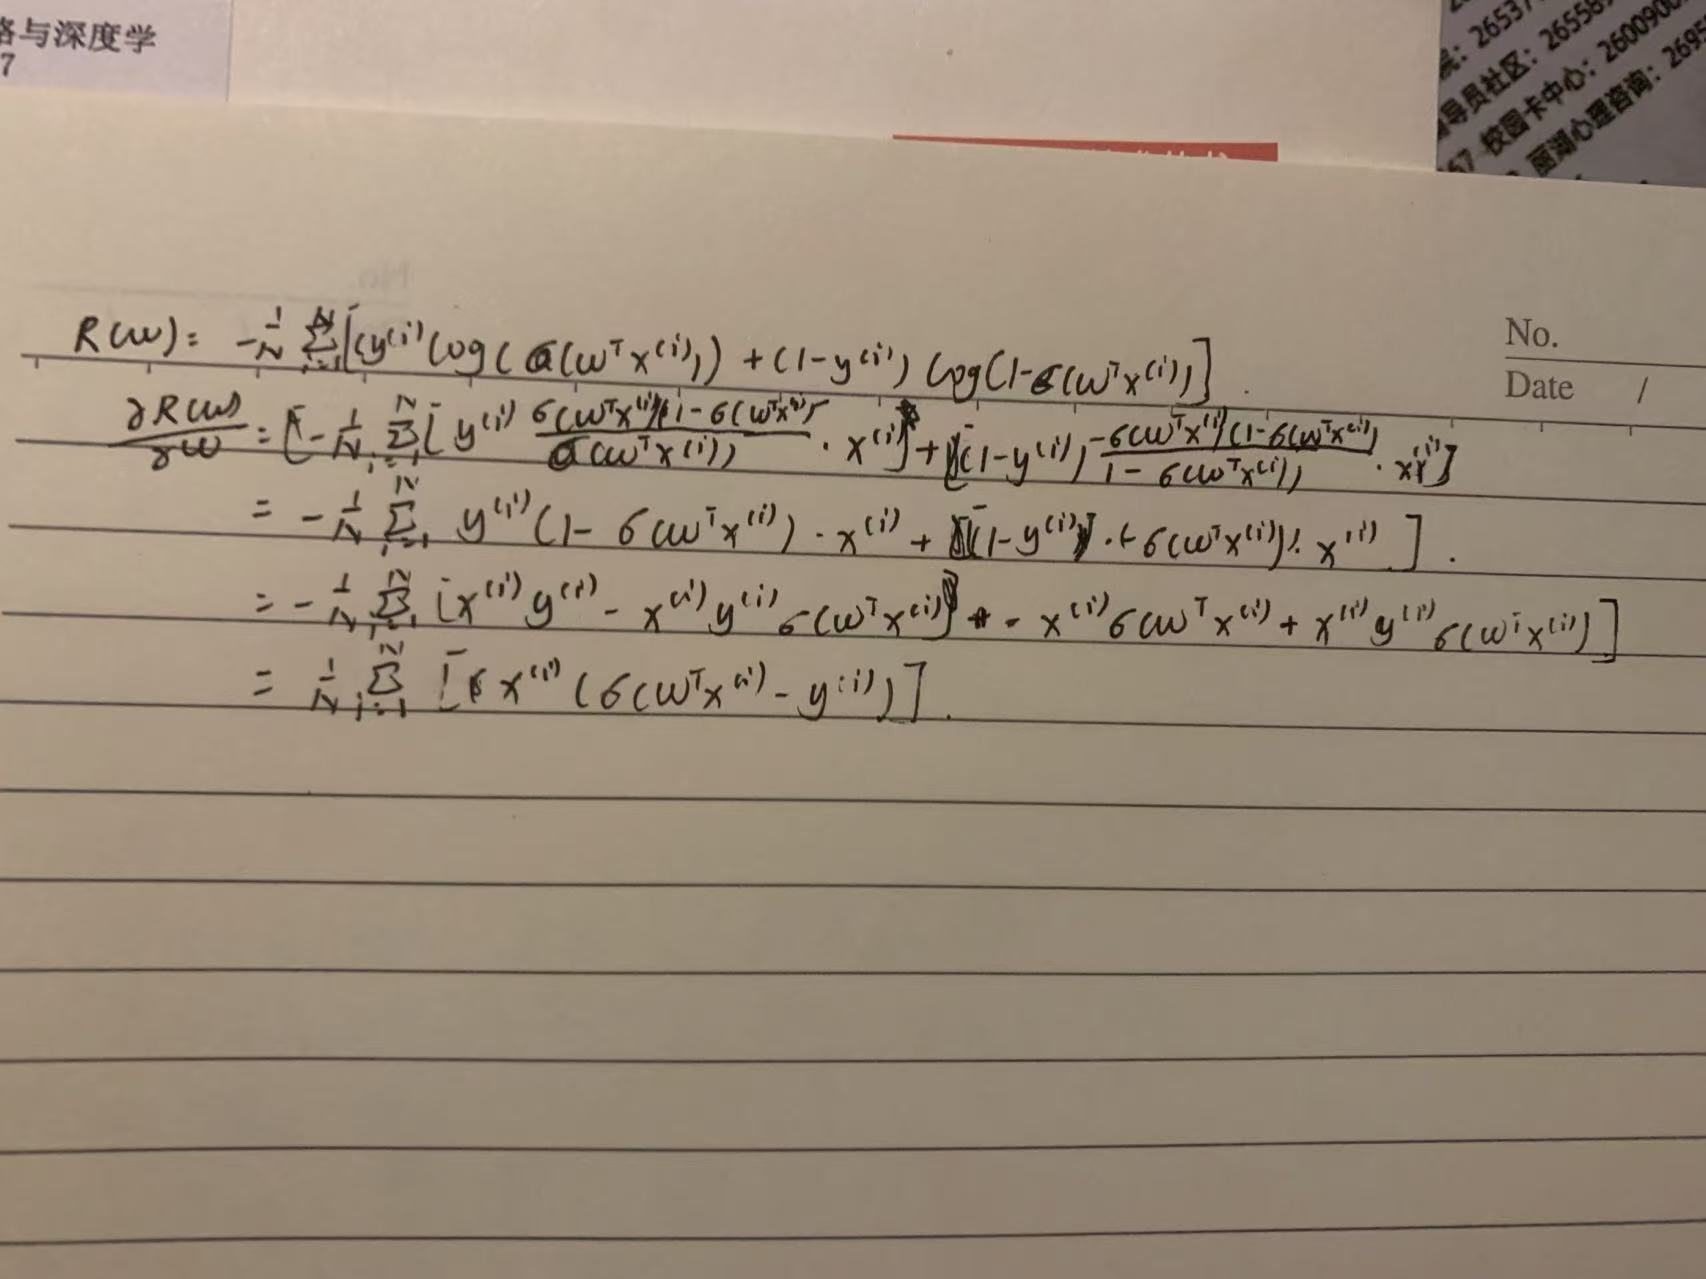 络与深度学
7
院：26537
导员社区：26558
67 校园卡中心：2600900
丽湖心理咨询：2695
No.
Date /
R(w) = -1/N Σ_{i=1}^{N} [(y^(i) log(σ(w^T x^(i))) + (1-y^(i)) log(1-σ(w^T x^(i))].
∂R(w)/∂w = [-1/N Σ_{i=1}^{N} [y^(i) σ(w^T x^(i))(1-σ(w^T x^(i)))/σ(w^T x^(i)) · x^(i)] + [(1-y^(i)) -σ(w^T x^(i))(1-σ(w^T x^(i)))/1-σ(w^T x^(i)) · x^(i)]
= -1/N Σ_{i=1}^{N} y^(i)(1-σ(w^T x^(i)) · x^(i) + [(1-y^(i)) · (-σ(w^T x^(i))) · x^(i)].
= -1/N Σ_{i=1}^{N} [x^(i) y^(i) - x^(i) y^(i) σ(w^T x^(i)) - x^(i) σ(w^T x^(i) + x^(i) y^(i) σ(w^T x^(i))]
= 1/N Σ_{i=1}^{N} [x^(i) (σ(w^T x^(i) - y^(i))].